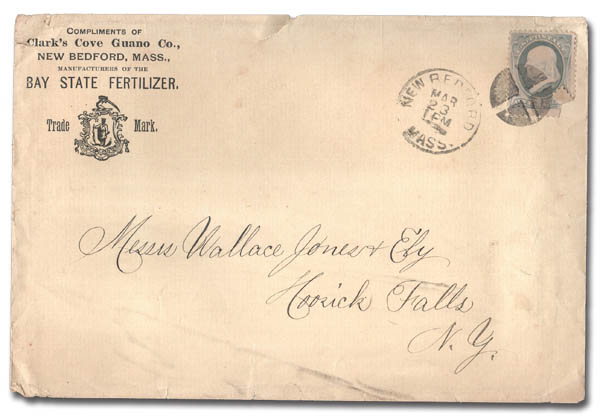 COMPLIMENTS OF
Clark's Cove Guano Co.,
NEW BEDFORD, MASS.,
MANUFACTURERS OF THE
BAY STATE FERTILIZER.
Trade Mark.
NEW BEDFORD
MAR
23
1 PM
MASS.
Messrs Wallace Jones & Ely
Hoosick Falls
N. Y.